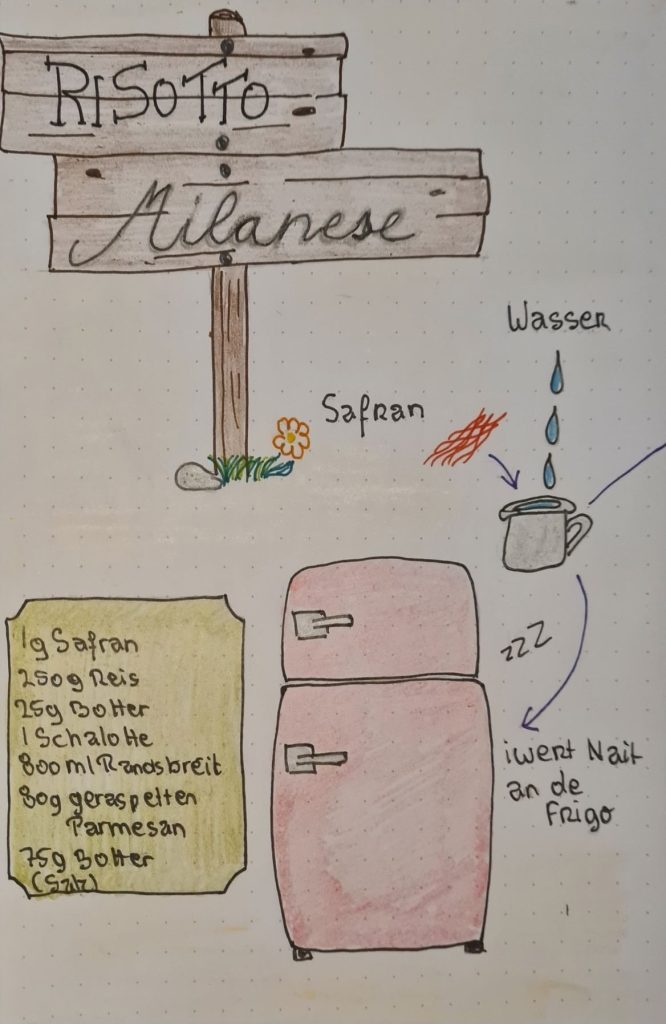 RISOTTO
Milanese
Wasser
Safran
zzZ
iwert Nait
an de
Frigo
1g Safran
250g Reis
25g Botter
1 Schalotte
800ml Randsbreit
80g geraspelten
Parmesan
75g Botter
(Salz)